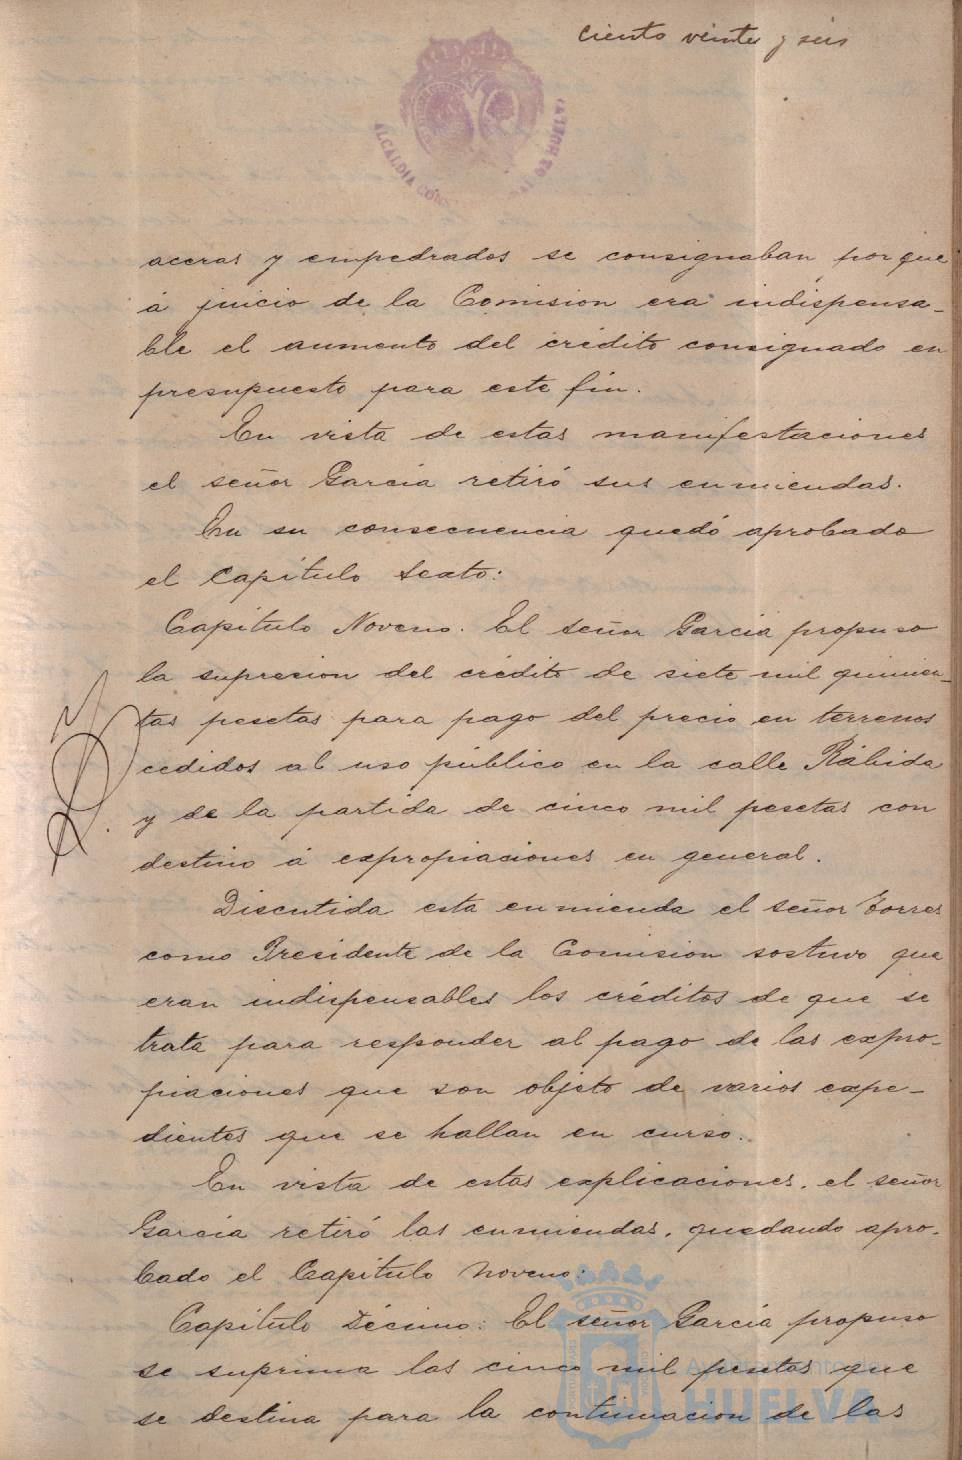 ciento veinte y seis
ALCALDIA CONS DE HUELVA
aceras y empedrados se consignaban porque
á juicio de la Comision era indispensa-
ble el aumento del crédito consignado en
presupuesto para este fin.
En vista de estas manifestaciones
el señor García retiró sus enmiendas.
En su consecuencia quedó aprobado
el Capítulo Sexto:
Capítulo Noveno. El señor García propuso
la supresion del crédito de siete mil quinien-
tas pesetas para pago del precio en terrenos
cedidos al uso público en la calle Rábida
y de la partida de cinco mil pesetas con
destino á expropiaciones en general.
Discutida esta enmienda el señor Torres
como Presidente de la Comision sostuvo que
eran indispensables los créditos de que se
trata para responder al pago de las expro-
piaciones que son objeto de varios expe-
dientes que se hallan en curso.
En vista de estas explicaciones, el señor
García retiró las enmiendas, quedando apro-
bado el Capítulo Noveno:
Capítulo Décimo: El señor García propuso
se suprima las cinco mil pesetas que
se destina para la continuacion de las
Ayuntamiento de
HUELVA